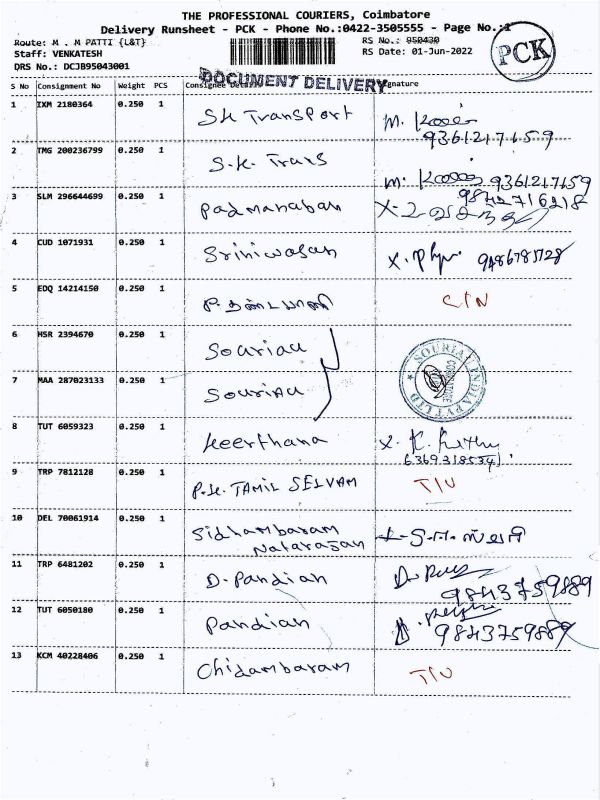 THE PROFESSIONAL COURIERS, Coimbatore
Delivery Runsheet - PCK - Phone No.:0422-3505555 - Page No.:1
Route: M . M PATTI {L&T}
RS No.: 950430
Staff: VENKATESH
RS Date: 01-Jun-2022
PCK
DRS No.: DCJB95043001
S No Consignment No Weight PCS Consignee Signature
DOCUMENT DELIVERY
1 IXM 2180364 0.250 1 SK Transport M.
9361217659
2 TMG 200236799 0.250 1 S.K. Trans M. 9361217659
3 SLM 296644699 0.250 1 Padmanaban 9842716218
4 CUD 1071931 0.250 1 Sriniwasan X.
5 EDQ 14214150 0.250 1 C/N
6 HSR 2394670 0.250 1 Souriau
7 MAA 287023133 0.250 1 Souriau
SOURIAU INDIA PVT LTD
COIMBATORE
8 TUT 6059323 0.250 1 Keerthana X. K.
9 TRP 7812128 0.250 1 P.K. TAMIL SELVAM T/U
10 DEL 70061914 0.250 1 Sidhambaram
Natarasan
11 TRP 6481202 0.250 1 D. Pandian
9843759889
12 TUT 6050180 0.250 1 Pandian
9843759889
13 KCM 40228406 0.250 1 Chidambaram T/U